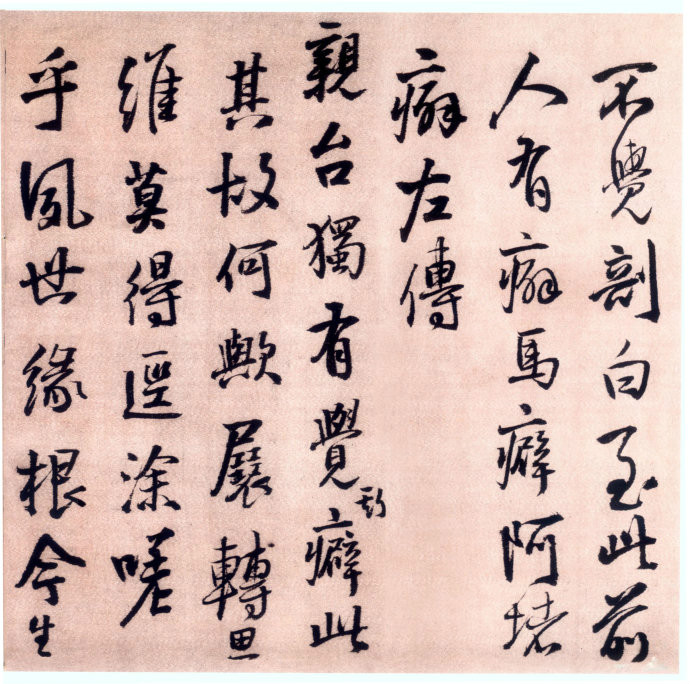 不覺剖白至此前
人有癖馬癖阿堵
癖左傳
親台獨有覺斯癖此
其故何歟展轉思
維莫得逕涂嗟
乎夙世緣根今生